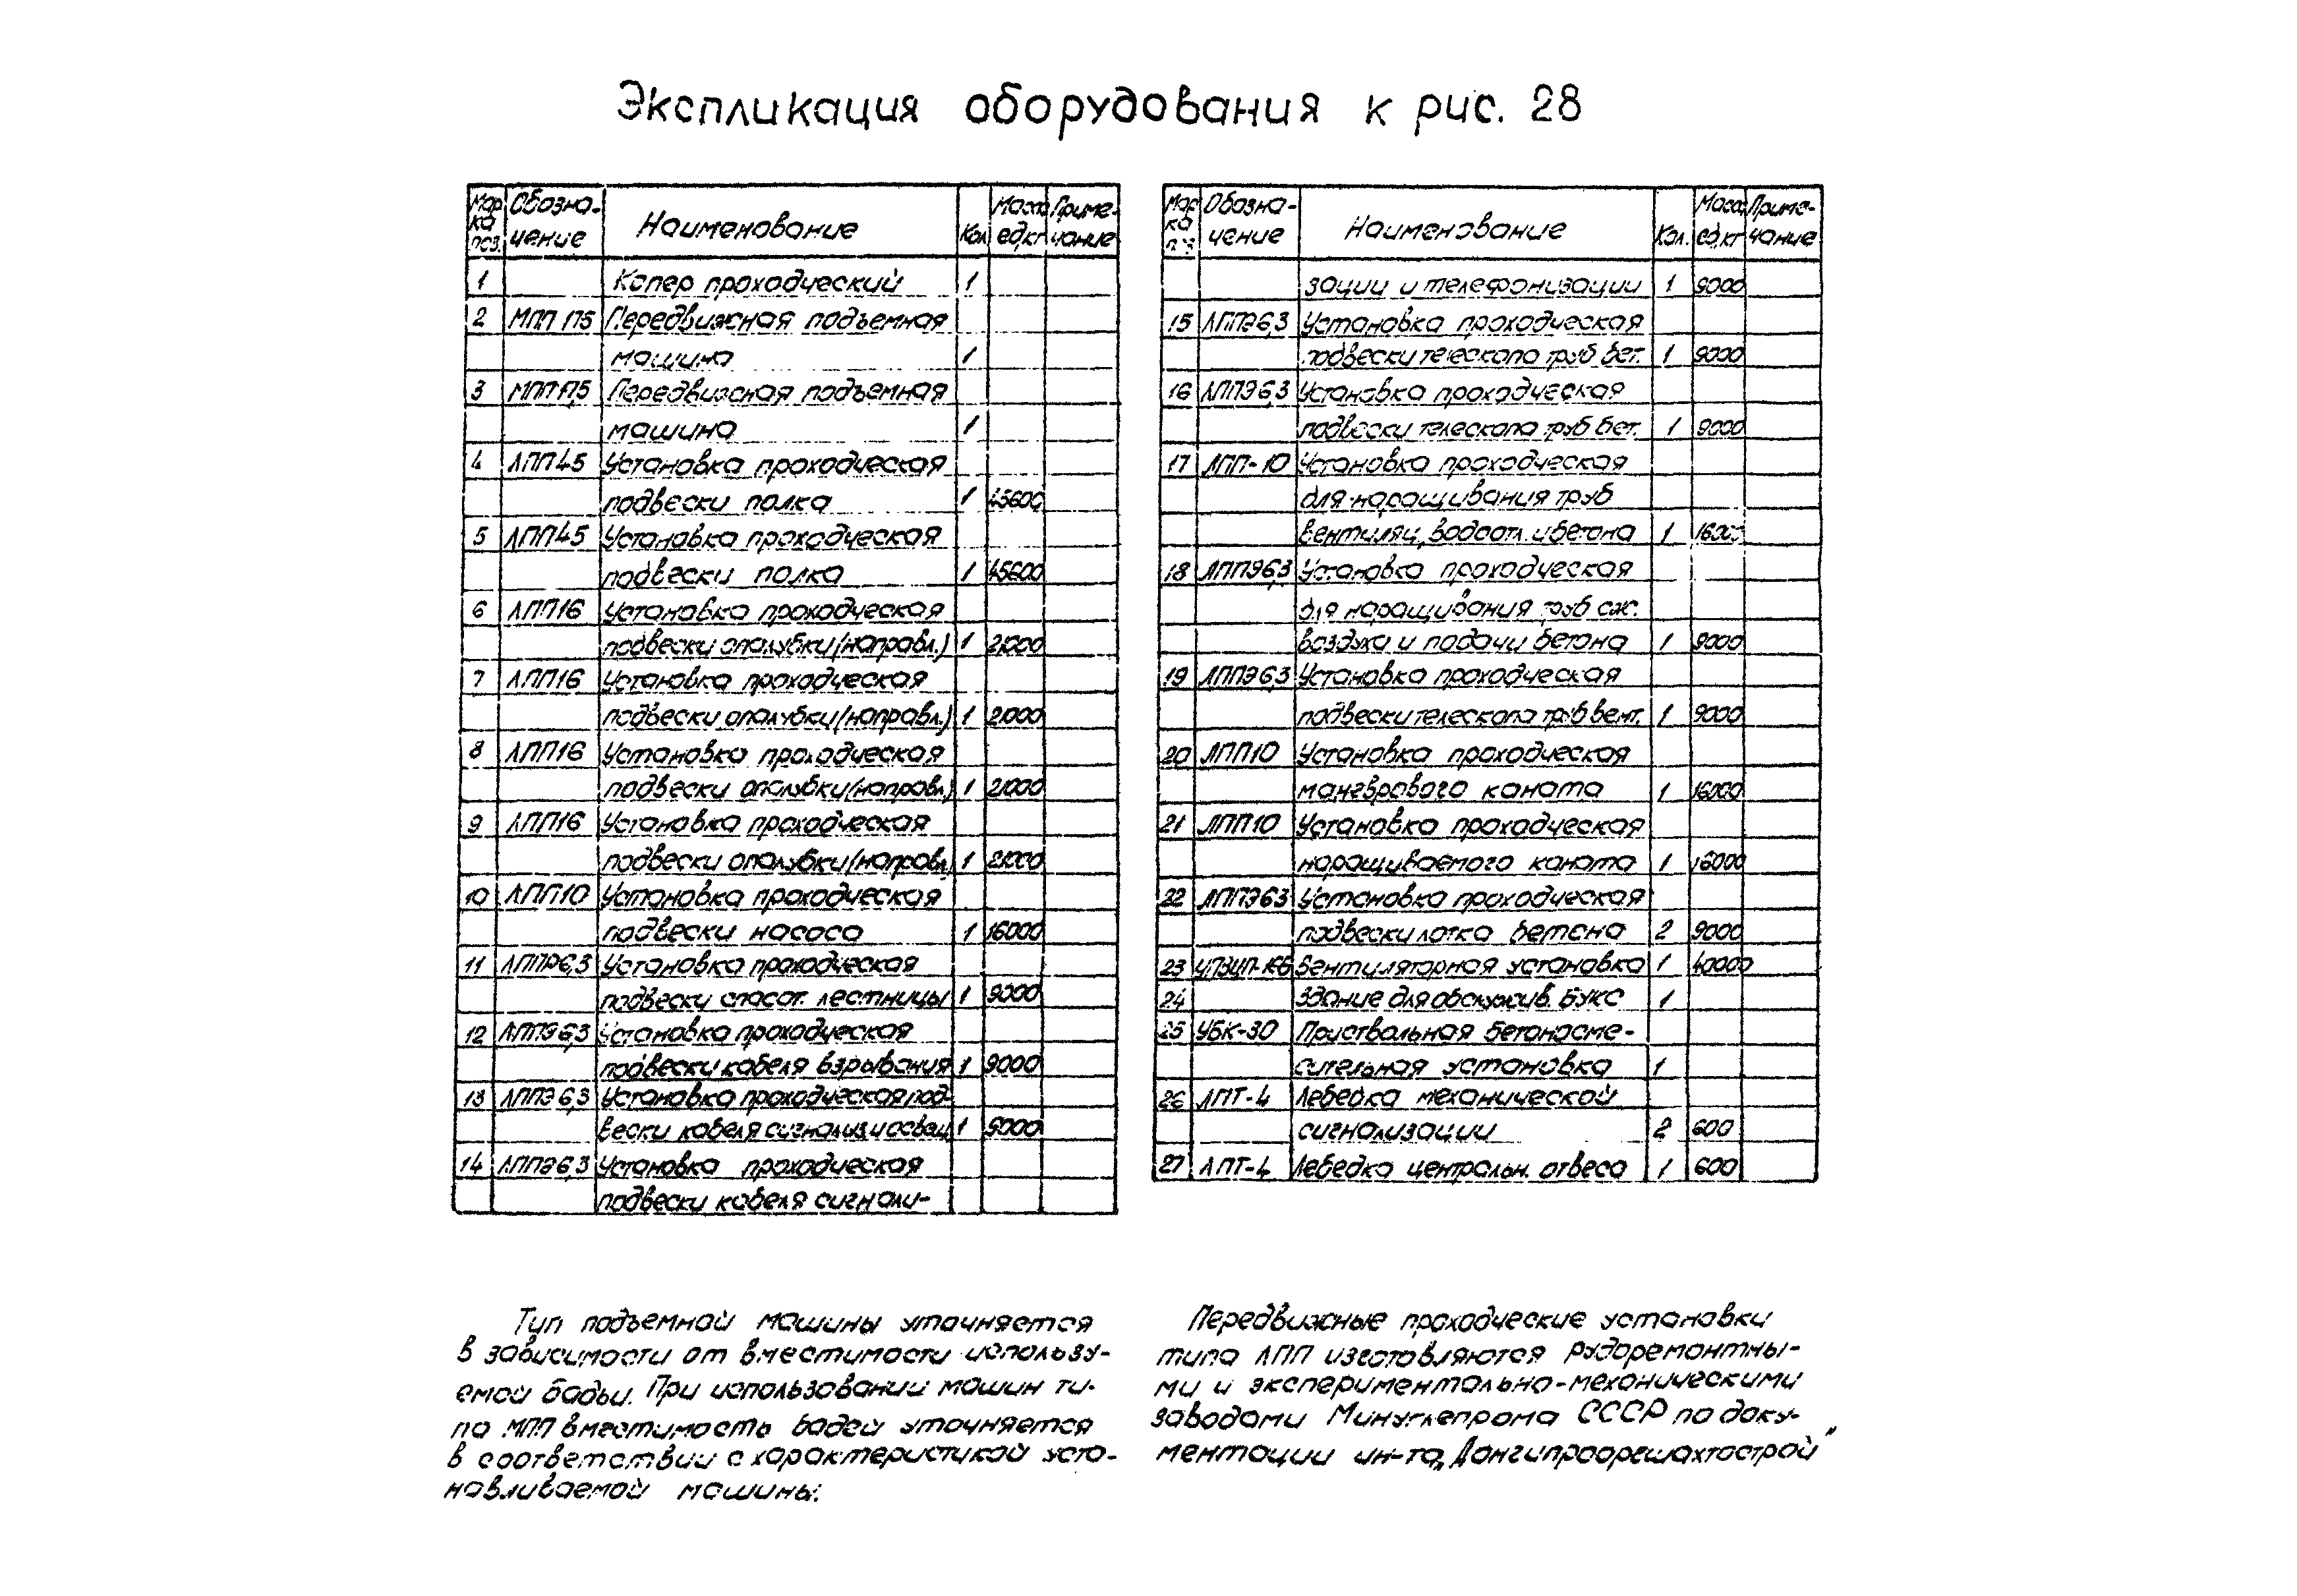 Экспликация оборудования к рис. 28
Мар Обозна- Наименование Кол Масса Приме-
ка чение ед,кг чание
поз.
1 Копер проходческий 1
2 МПП 17,5 Передвижная подъемная
машина 1
3 МПП 17,5 Передвижная подъемная
машина 1
4 ЛПП45 Установка проходческая
подвески полка 1 45600
5 ЛПП45 Установка проходческая
подвески полка 1 45600
6 ЛПП16 Установка проходческая
подвески опалубки/направл.) 1 21000
7 ЛПП16 Установка проходческая
подвески опалубки/направл.) 1 21000
8 ЛПП16 Установка проходческая
подвески опалубки/направл.) 1 21000
9 ЛПП16 Установка проходческая
подвески опалубки/направл. 1 21000
10 ЛПП10 Установка проходческая
подвески насоса 1 16000
11 ЛППЭ6,3 Установка проходческая
подвески спасат. лестницы 1 9000
12 ЛППЭ6,3 Установка проходческая
подвески кабеля взрывания 1 9000
13 ЛППЭ6,3 Установка проходческая под-
вески кабеля сигнализ и освещ 1 9000
14 ЛППЭ6,3 Установка проходческая
подвески кабеля сигнали-
Мар Обозна- Наименование Кол. Масса Приме-
ка чение ед,кг чание
зации и телефонизации 1 9000
15 ЛППЭ6,3 Установка проходческая
подвески телескопа труб бет. 1 9000
16 ЛППЭ6,3 Установка проходческая
подвески телескопа труб бет. 1 9000
17 ЛПП-10 Установка проходческая
для наращивания труб
вентиляц, водоотл. и бетона 1 16000
18 ЛППЭ6,3 Установка проходческая
для наращивания труб сж.
воздуха и подачи бетона 1 9000
19 ЛППЭ6,3 Установка проходческая
подвески телескопа труб вент. 1 9000
20 ЛПП10 Установка проходческая
маневрового каната 1 16000
21 ЛПП10 Установка проходческая
наращиваемого каната 1 16000
22 ЛППЭ63 Установка проходческая
подвески лотка бетона 2 9000
23 Вентиляторная установка 1 40000
24 Здание для обслужив. БУКС 1
25 УБК-30 Приствольная бетоносме-
сительная установка 1
26 ЛПТ-4 Лебедка механической
сигнализации 2 600
27 ЛПТ-4 Лебедка центральн. отвеса 1 600
Тип подъемной машины уточняется
в зависимости от вместимости использу-
емой бадьи. При использовании машин ти-
па МПП вместимость бадей уточняется
в соответствии с характеристикой уста-
навливаемой машины.
Передвижные проходческие установки
типа ЛПП изготовляются рудоремонтны-
ми и экспериментально-механическими
заводами Минуглепрома СССР по доку-
ментации ин-та „Донгипрооргшахтострой"